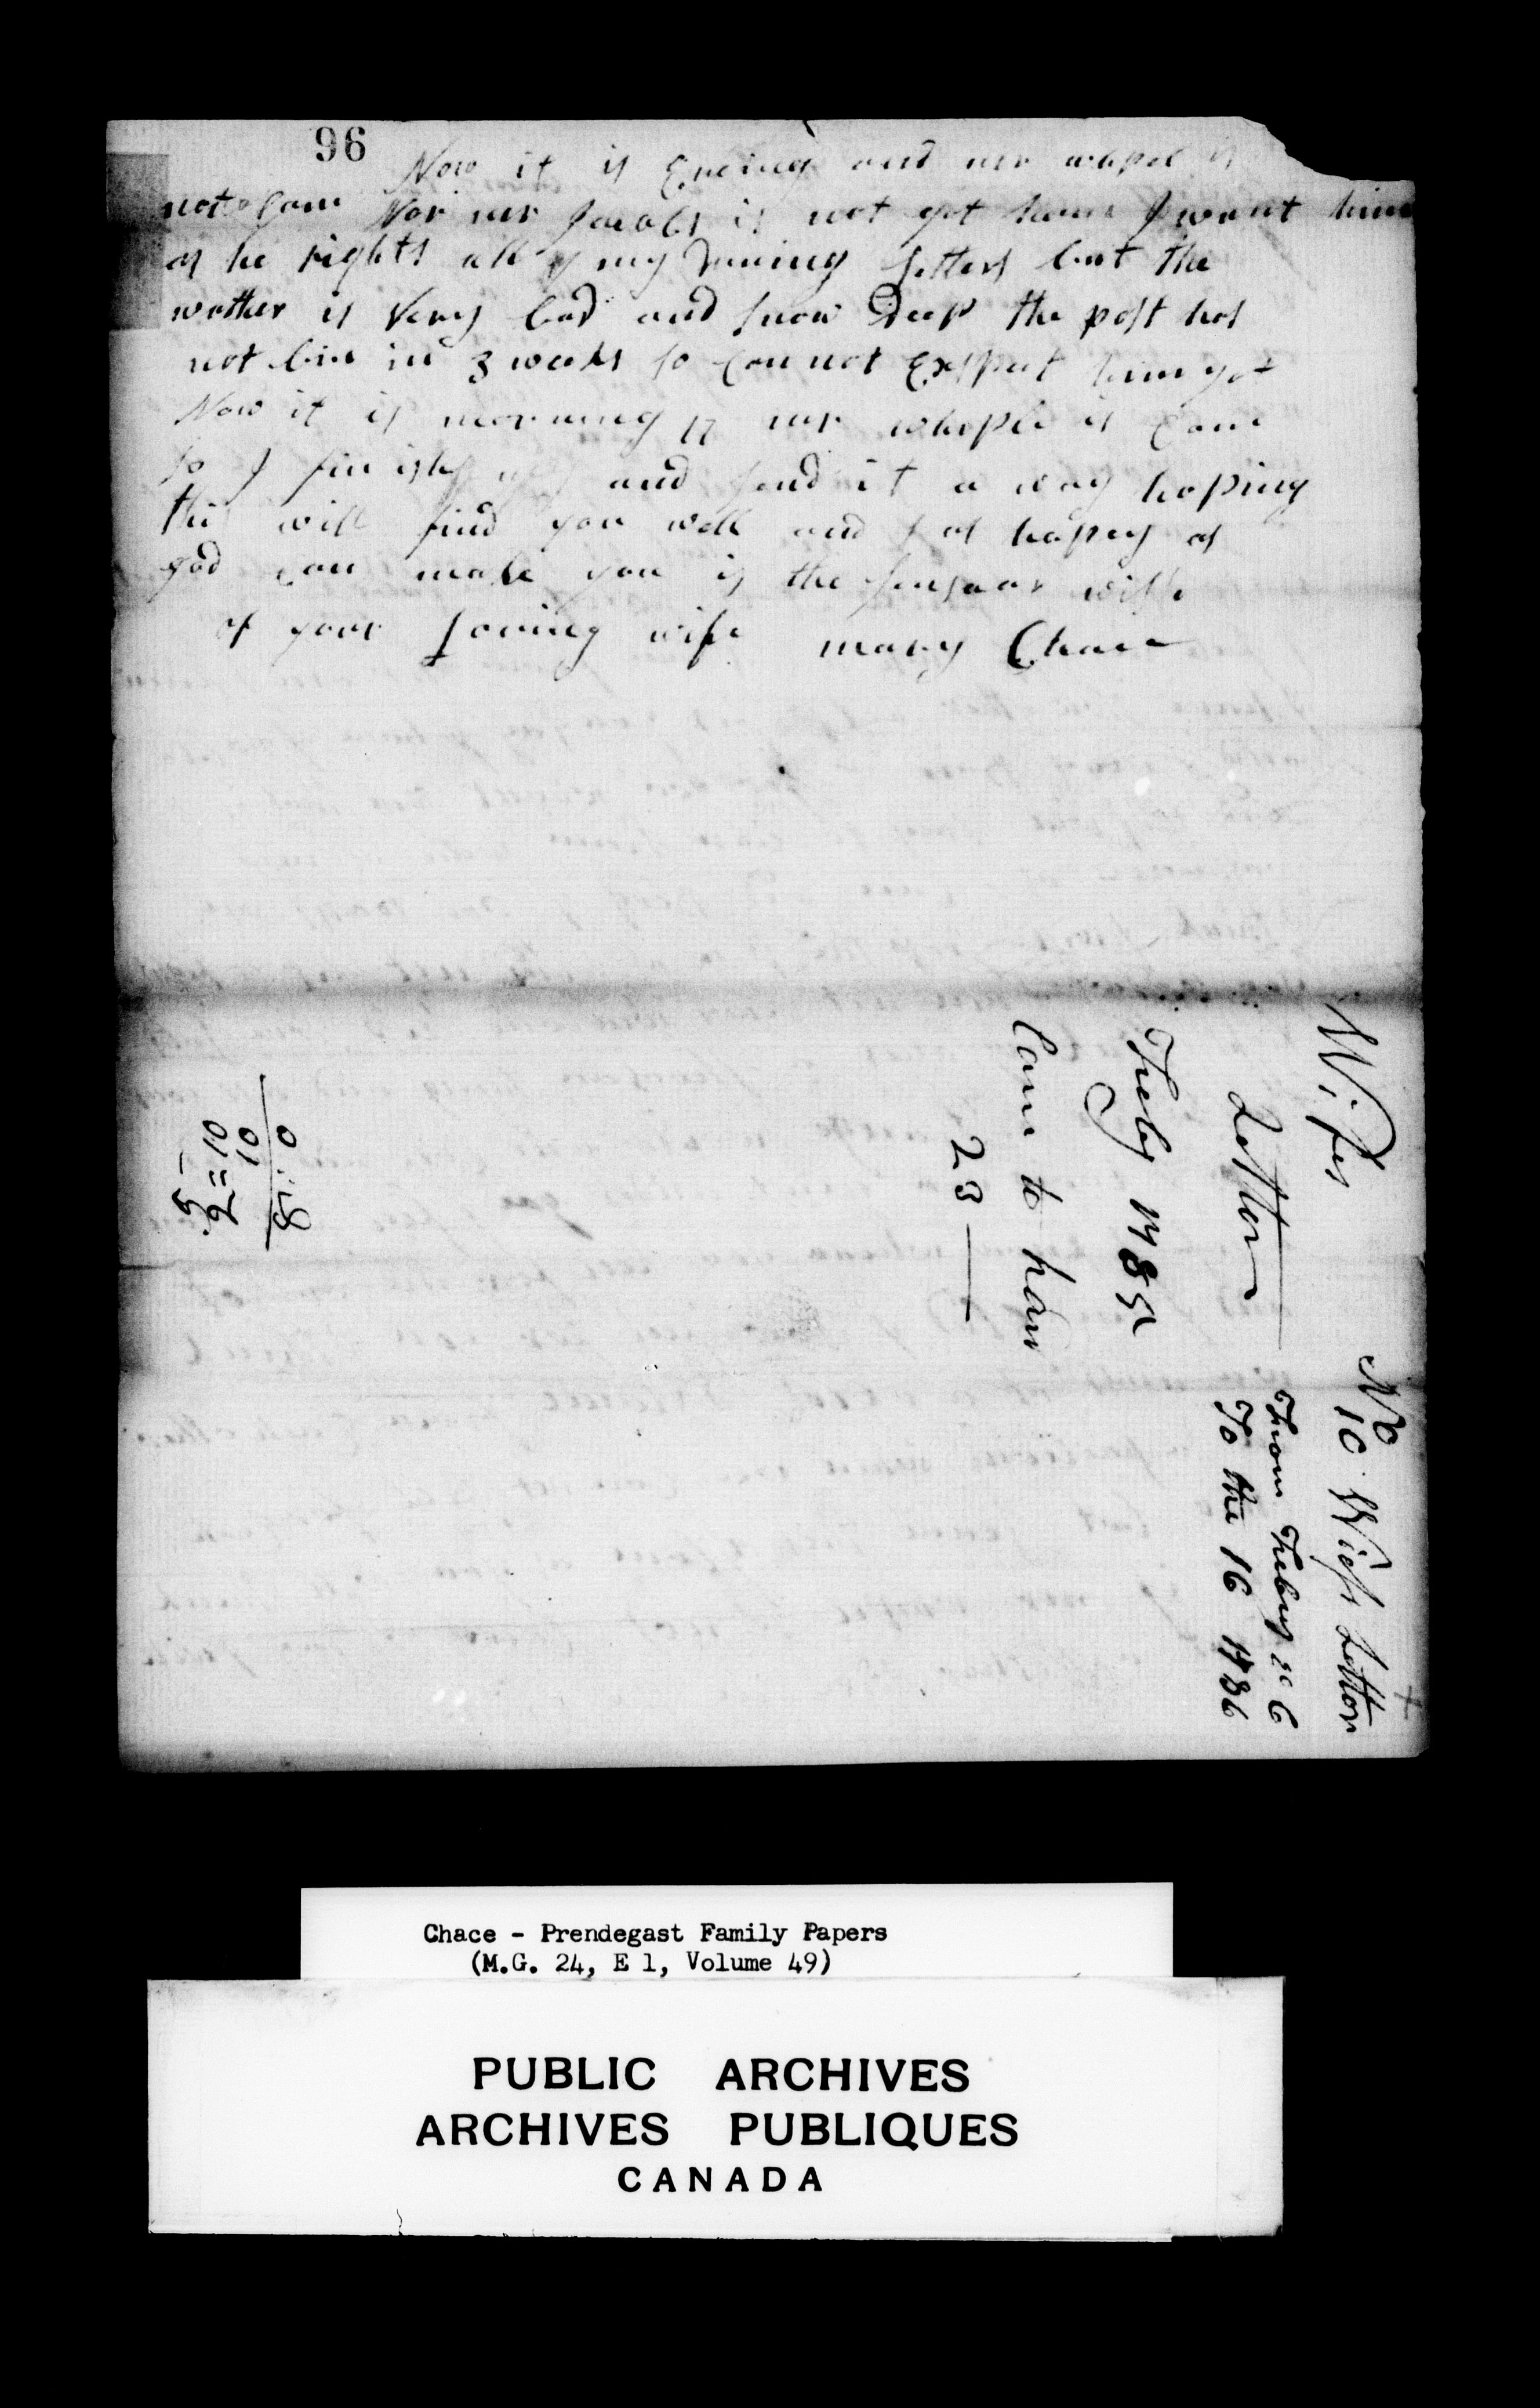 96
Now it is Evening and mr whipel is
not Came Nor mr Jacobs is not got home I want him
as he rights all of my Duning Letters but the
wether is Very bad and snow Deep the post has
not bin in 3 weeks so Can not Exspect him yet
Now it is morning 17 mr whiple is Came
so I finish and send it a way hoping
this will find you well and as hapey as
god can make you is the sinsear wish
of your Loving wife mary Chace
Wifes
Letter
Feby 1785
Came to han
23
No 10 Wiefs Letter
From Febuy 6
To the 16 1786
Chace - Prendegast Family Papers
(M.G. 24, E 1, Volume 49)
PUBLIC ARCHIVES
ARCHIVES PUBLIQUES
CANADA